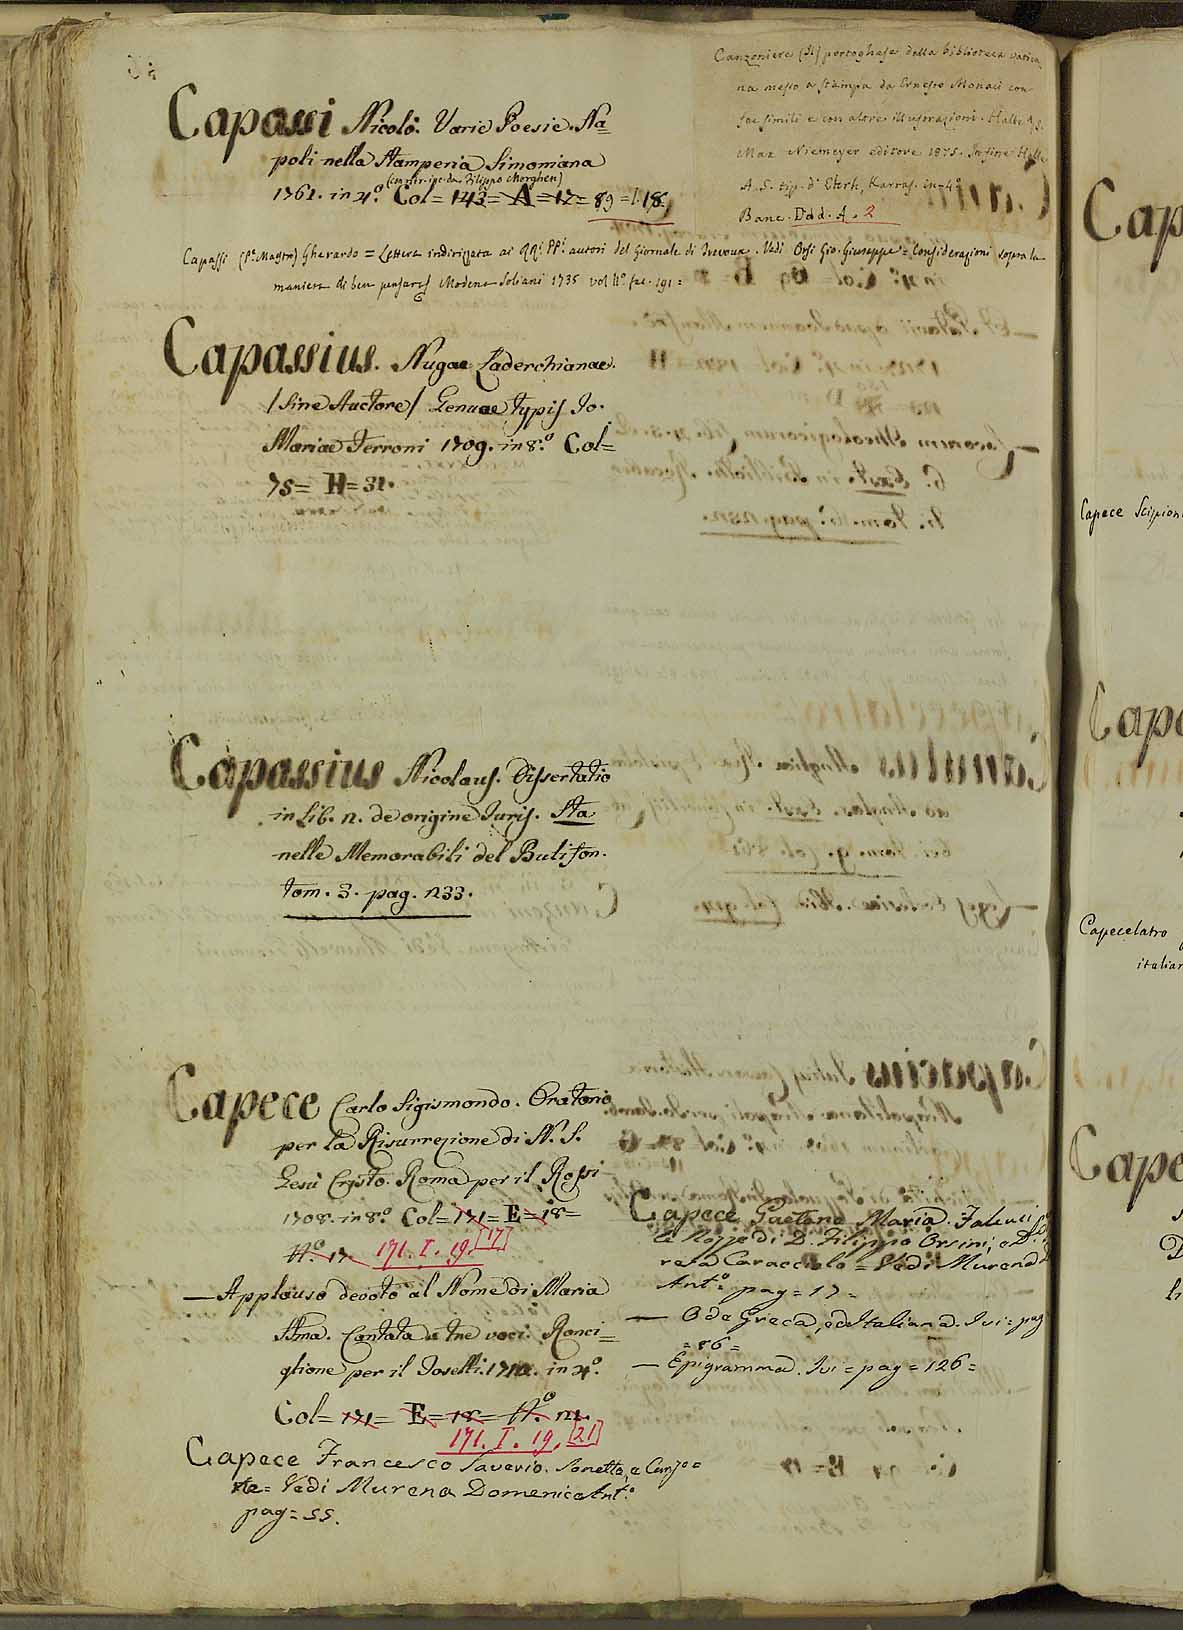 Capassi Nicolò. Varie Poesie. Na=
poli nella Stamperia Simoniana
(con rit. inc. da Filippo Morghen)
1761. in 4.º Col= 143= A=12= 89 = I. 18.
Canzoniere (Il) portoghese della biblioteca vatica
na messo a stampa da Ernesto Monaci con
fac simili e con altre illustrazioni. Halle A/S.
Max Niemeyer editore 1875. In fine Halle
A. S. tip. d' Ehrh. Karras. in-4º
Banc. Ddd. A. 2
Capassi (Pº Maestro) Gherardo = Lettera indirizzata ai RR.i PP.i autori del Giornale di Trevoux. Vedi Orsi Gio. Giuseppe = Considerazioni sopra la
maniera di ben pensare Modena Soliani 1735 vol IIº. fac. 191 =
Capassius. Nugae Laderchianae.
/Sine Auctore/ Genuae typis Jo.
Mariae Ferroni 1709. in 8.º Col=
75= H= 31.
Capassius Nicolaus. Dissertatio
in Lib. 2. de origine Juris. Sta
nelle Memorabili del Bulifon.
tom. 3. pag. 233.
Capece Carlo Sigismondo. Oratorio
per la Risurrezione di N. S.
Gesù Cristo. Roma per il Rossi
1708. in 8.º Col= 171= E= 18=
N.º 17. 171. I. 19. [17]
— Applauso devoto al Nome di Maria
SSma. Cantata a tre voci. Ronci=
glione per il Toselli. 1712. in 4.º
Col= 171= E= 18= N.º 21.
171. I. 19. [21]
Capece Francesco Saverio. Sonetto, e Canzo=
ne= Vedi Murena Domenico Ant.º
pag= 55.
Capece Gaetano Maria. Faleuci p
le Nozze di D. Filippo Orsini, e D.
resa Caracciolo = Vedi Murena D
Ant.º pag= 17=
— Ode Greca, ed Italiana. Ivi= pag
= 86 =
— Epigramma. Ivi= pag= 126=
Cap
Capece Scipion
Cape
Capecelatro
italian
Cape